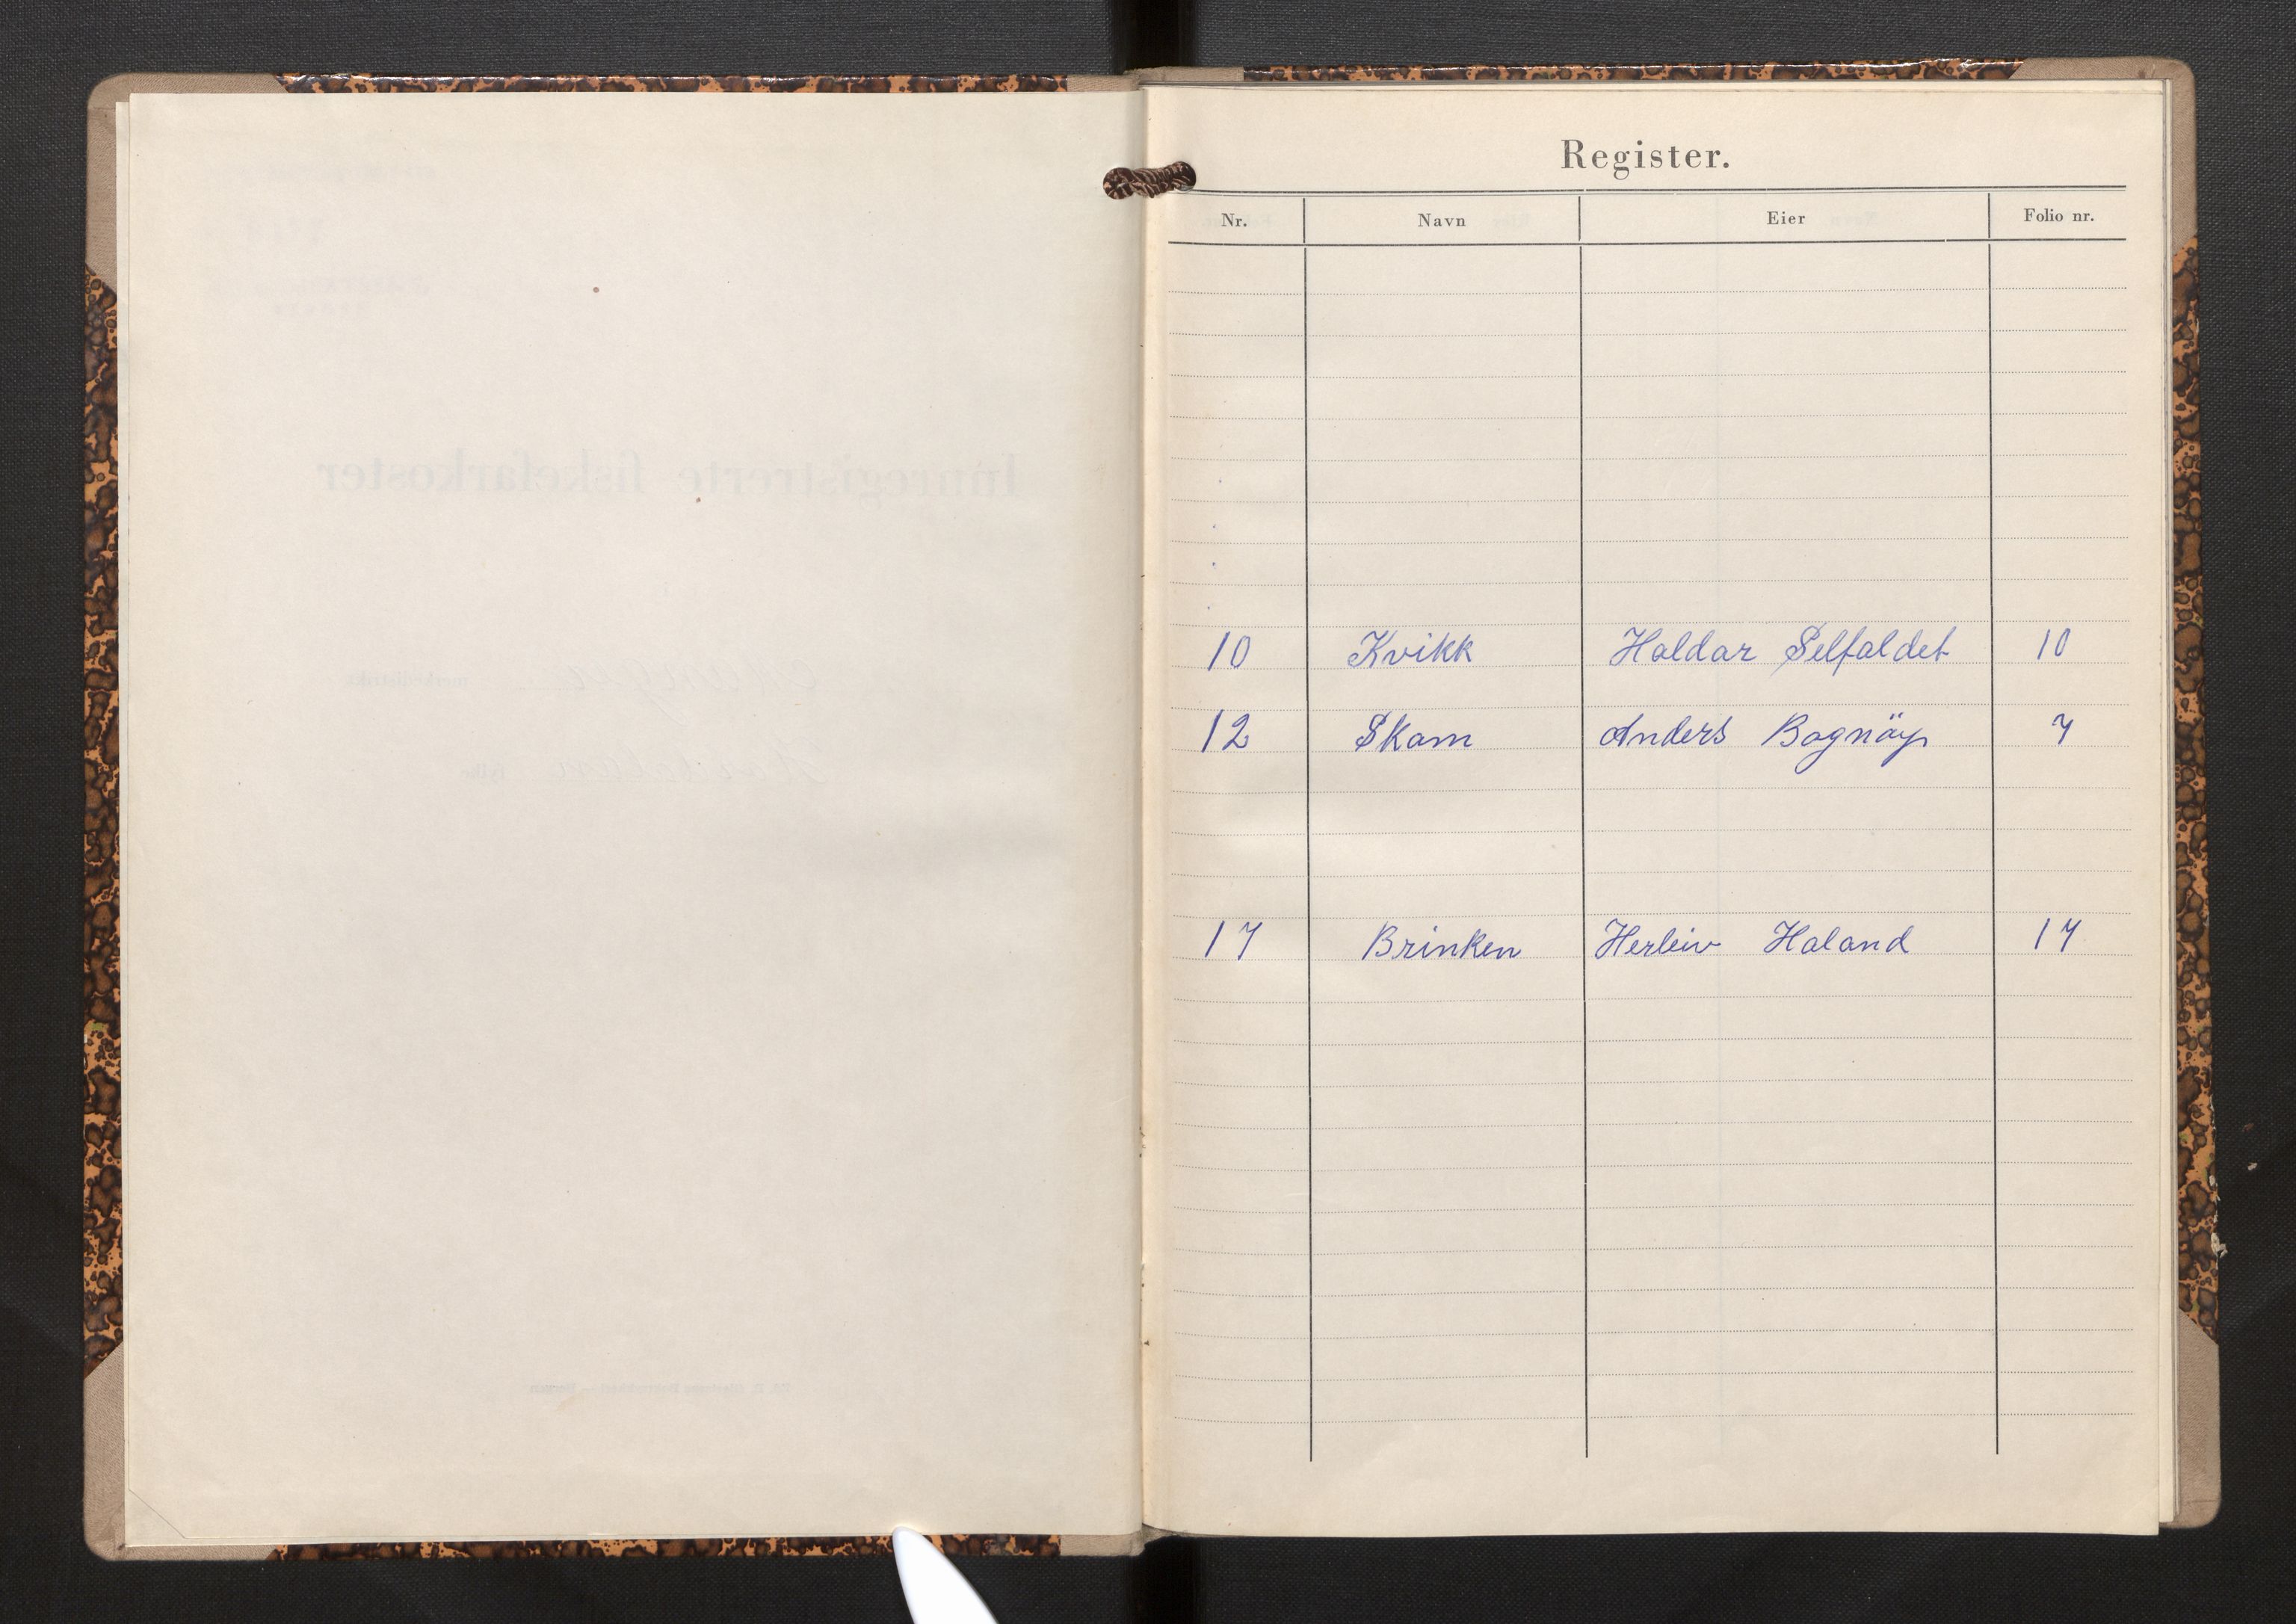 Register.
Nr. Navn Eier Folio nr.
10 Kvikk Haldar Selfaldet 10
12 Skam Anders Bagnöy 7
17 Brinken Herleiv Haland 17
Innregistrerte fiskefarkoster
merkedistrikt
fylke